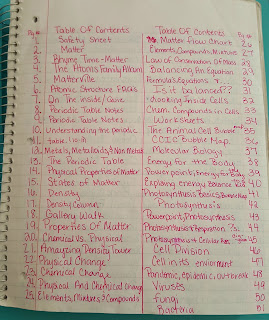 Pg # Table Of Contents
1. Safety Sheet
2. Matter
3. Rhyme Time - Matter
4. The Atoms Family Album
5. Matterville
6. Atomic Structure FACTS
7. On The Inside / Guide
8. Periodic Table Notes
9. Periodic Table Notes
10. Understanding the periodic
11. table 10-11
12. Metals, Metalloids, & Non Metals
13. The Periodic Table
14. Physical Properties of Matter
15. States of Matter
16. Density
17. Density Column
18. Gallery Walk
19. Properties Of Matter
20. Chemical Vs. Physical
21. Amazing Density Tower
22. Physical Change
23. Chemical Change
24. Physical And Chemical Change
25. Elements, Mixtures & Compounds
Table Of Contents Pg #
Matter Flow Chart 26
Elements, Compounds, Mixtures 27
Law of Conservation Of Mass 28
Balancing An Equation 29
Formulas & Equations 30
Is it balanced?? 31
Looking Inside Cells 32
Chem. Compounds in Cells 33
Worksheets 34
The Animal Cell 35
Bubble Map 36
Molecular Biology 37
Energy for the Body 38
Powerpoint, Energy for Body 39
Exploring energy Balance 40
Photosynthesis Basics 41
Photosynthesis 42
Powerpoint, Photosynthesis 43
Photosynthesis & Respiration 44
Photosynthesis & Cellular Res. 45
Cell Division 46
Cell in its enviorment 47
Pandemic, Epidemic, Outbreak 48
Viruses 49
Fungi 50
Bacteria 51